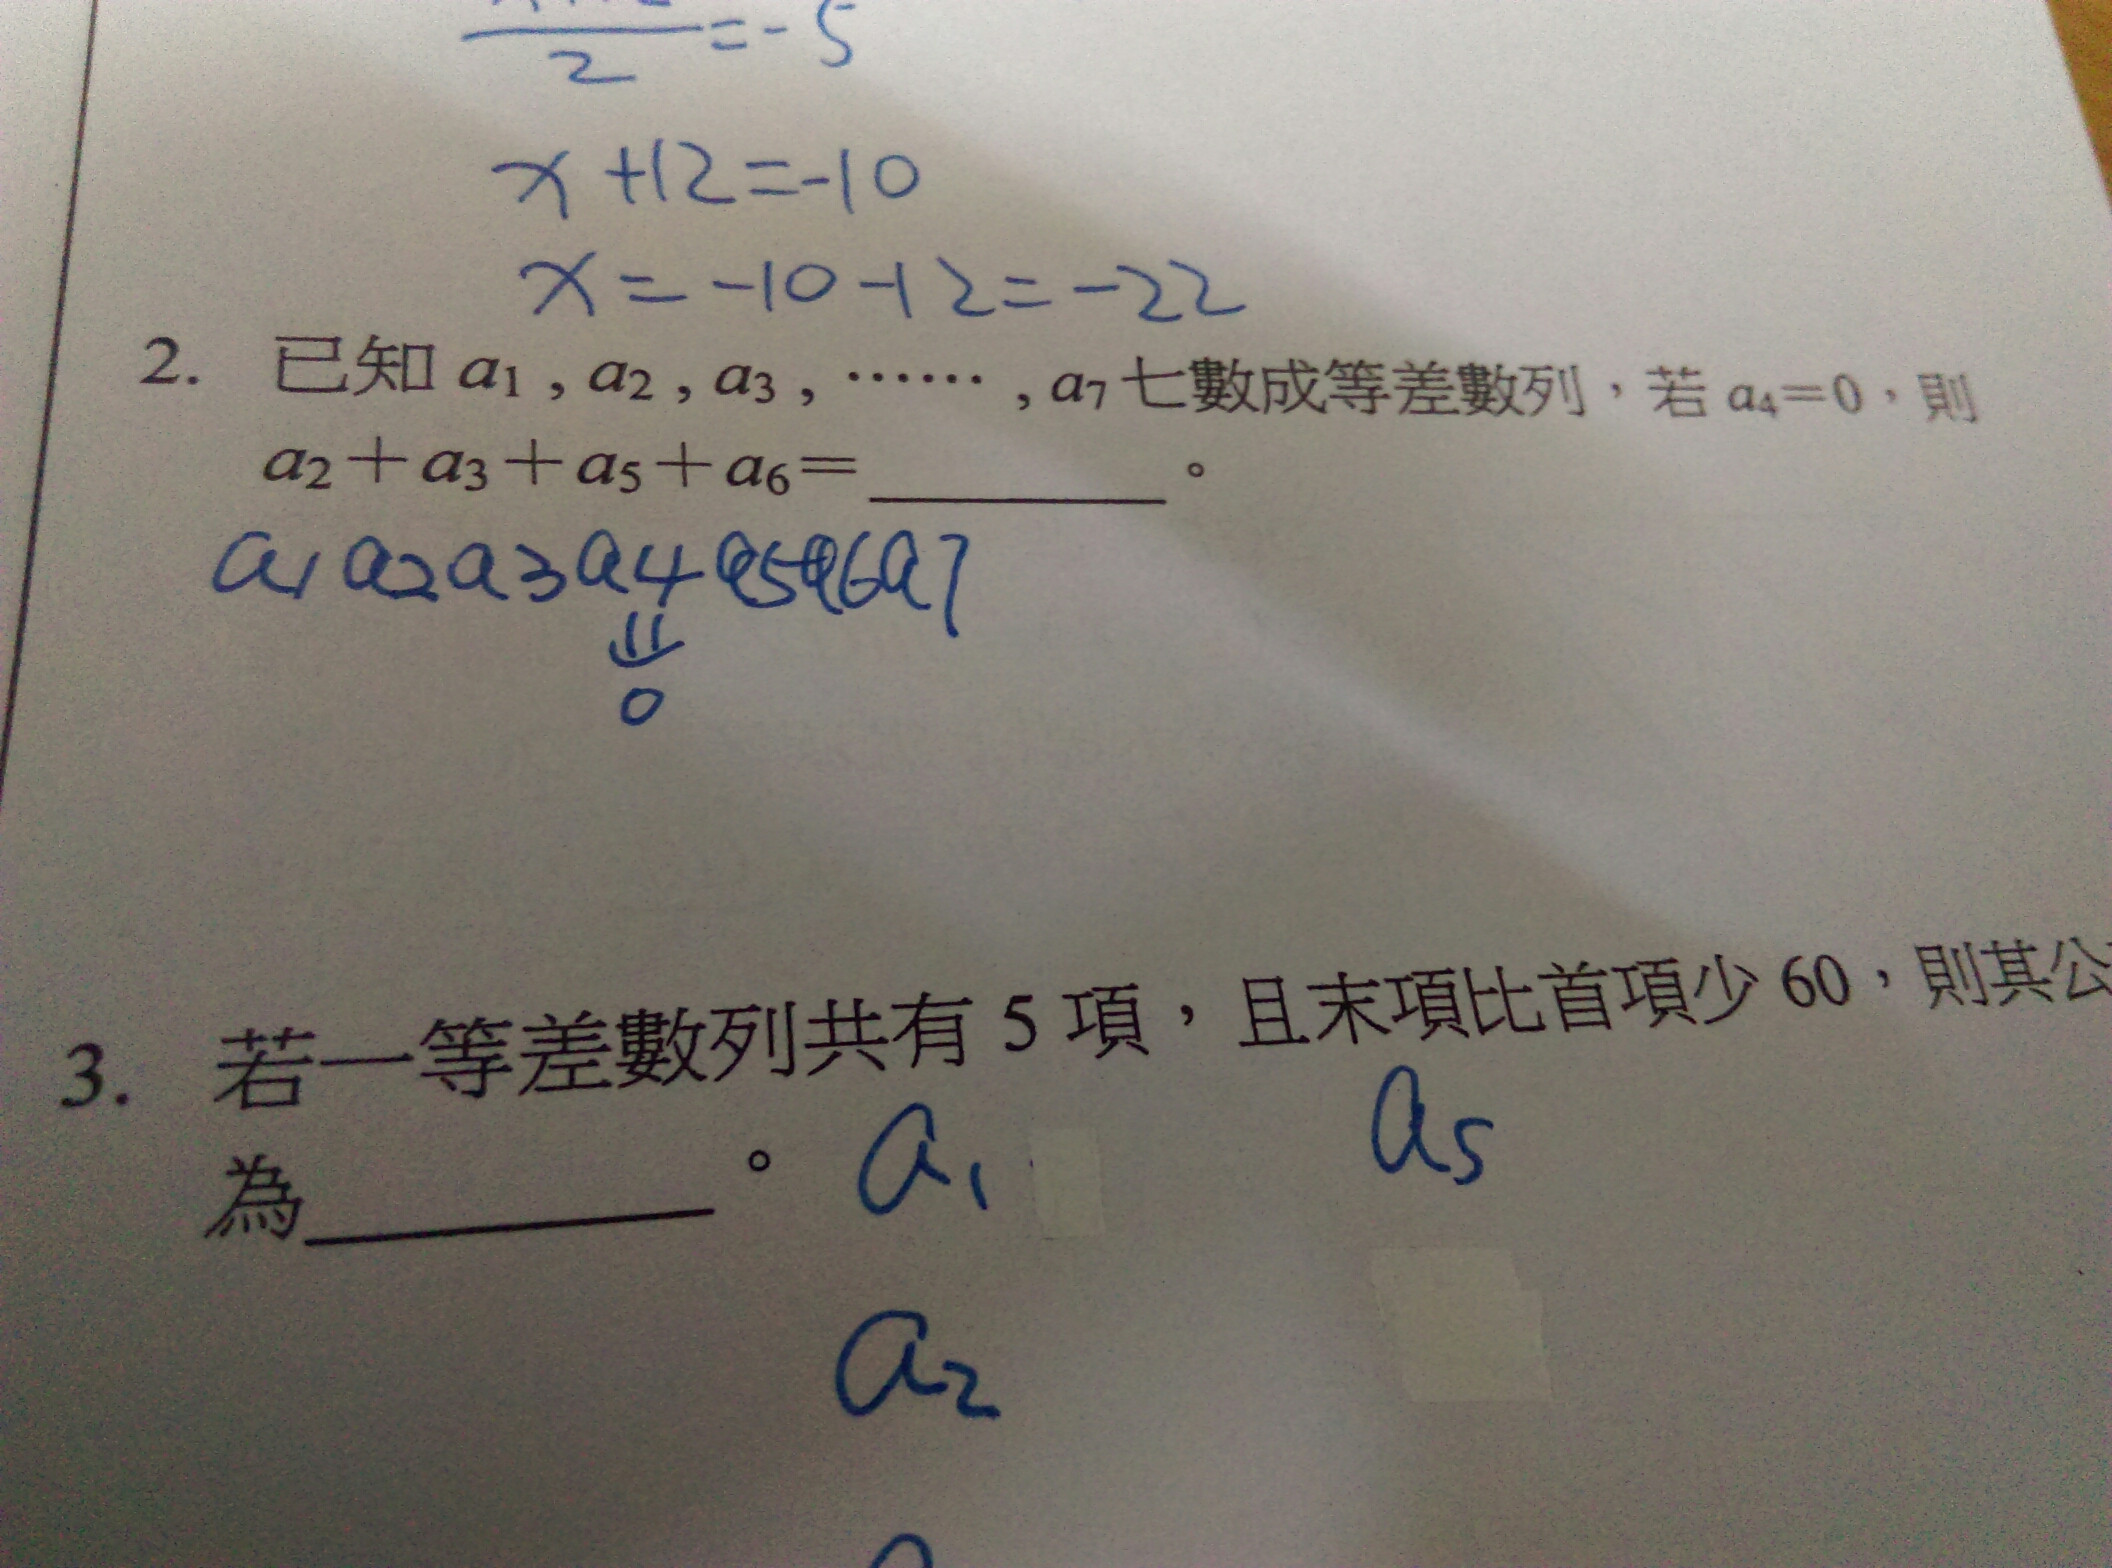 2 = -5
x+12=-10
x=-10-12=-22
2. 已知 a1 , a2 , a3 , …… , a7 七數成等差數列，若 a4＝0，則
a2＋a3＋a5＋a6＝________。
a1 a2 a3 a4 a5 a6 a7
=
0
3. 若一等差數列共有 5 項，且末項比首項少 60，則其公
為________。
a1 a5
a2